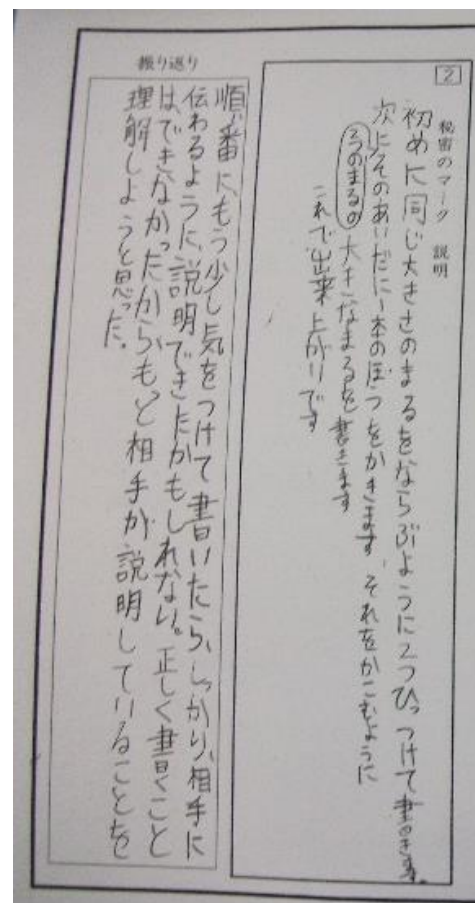 2
秘密のマーク 説明
初めに同じ大きさのまるをならぶように2つひっつけて書きます。
次にそのあいだに1本のぼうをかきます、それをかこむように
2つのまるの大きなまるを書きます
これで出来上がりです
振り返り
順番に、もう少し気をつけて書いたら、しっかり、相手に
伝わるように、説明できたかもしれない。正しく書くこと
は、できなかったからもっと相手が説明していることを
理解しようと思った。